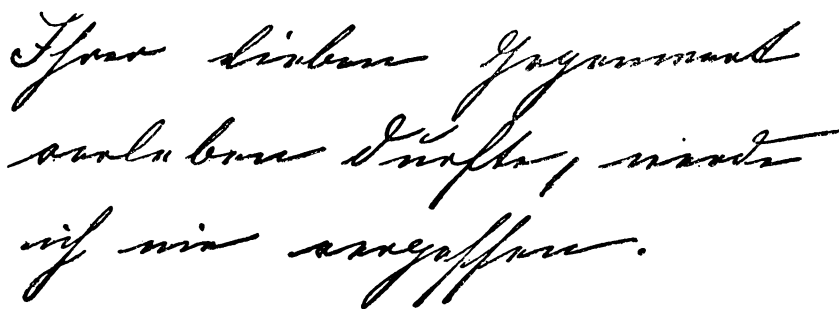 Ihrer lieben Gegenwart
verleben durfte, werde
ich nie vergessen.